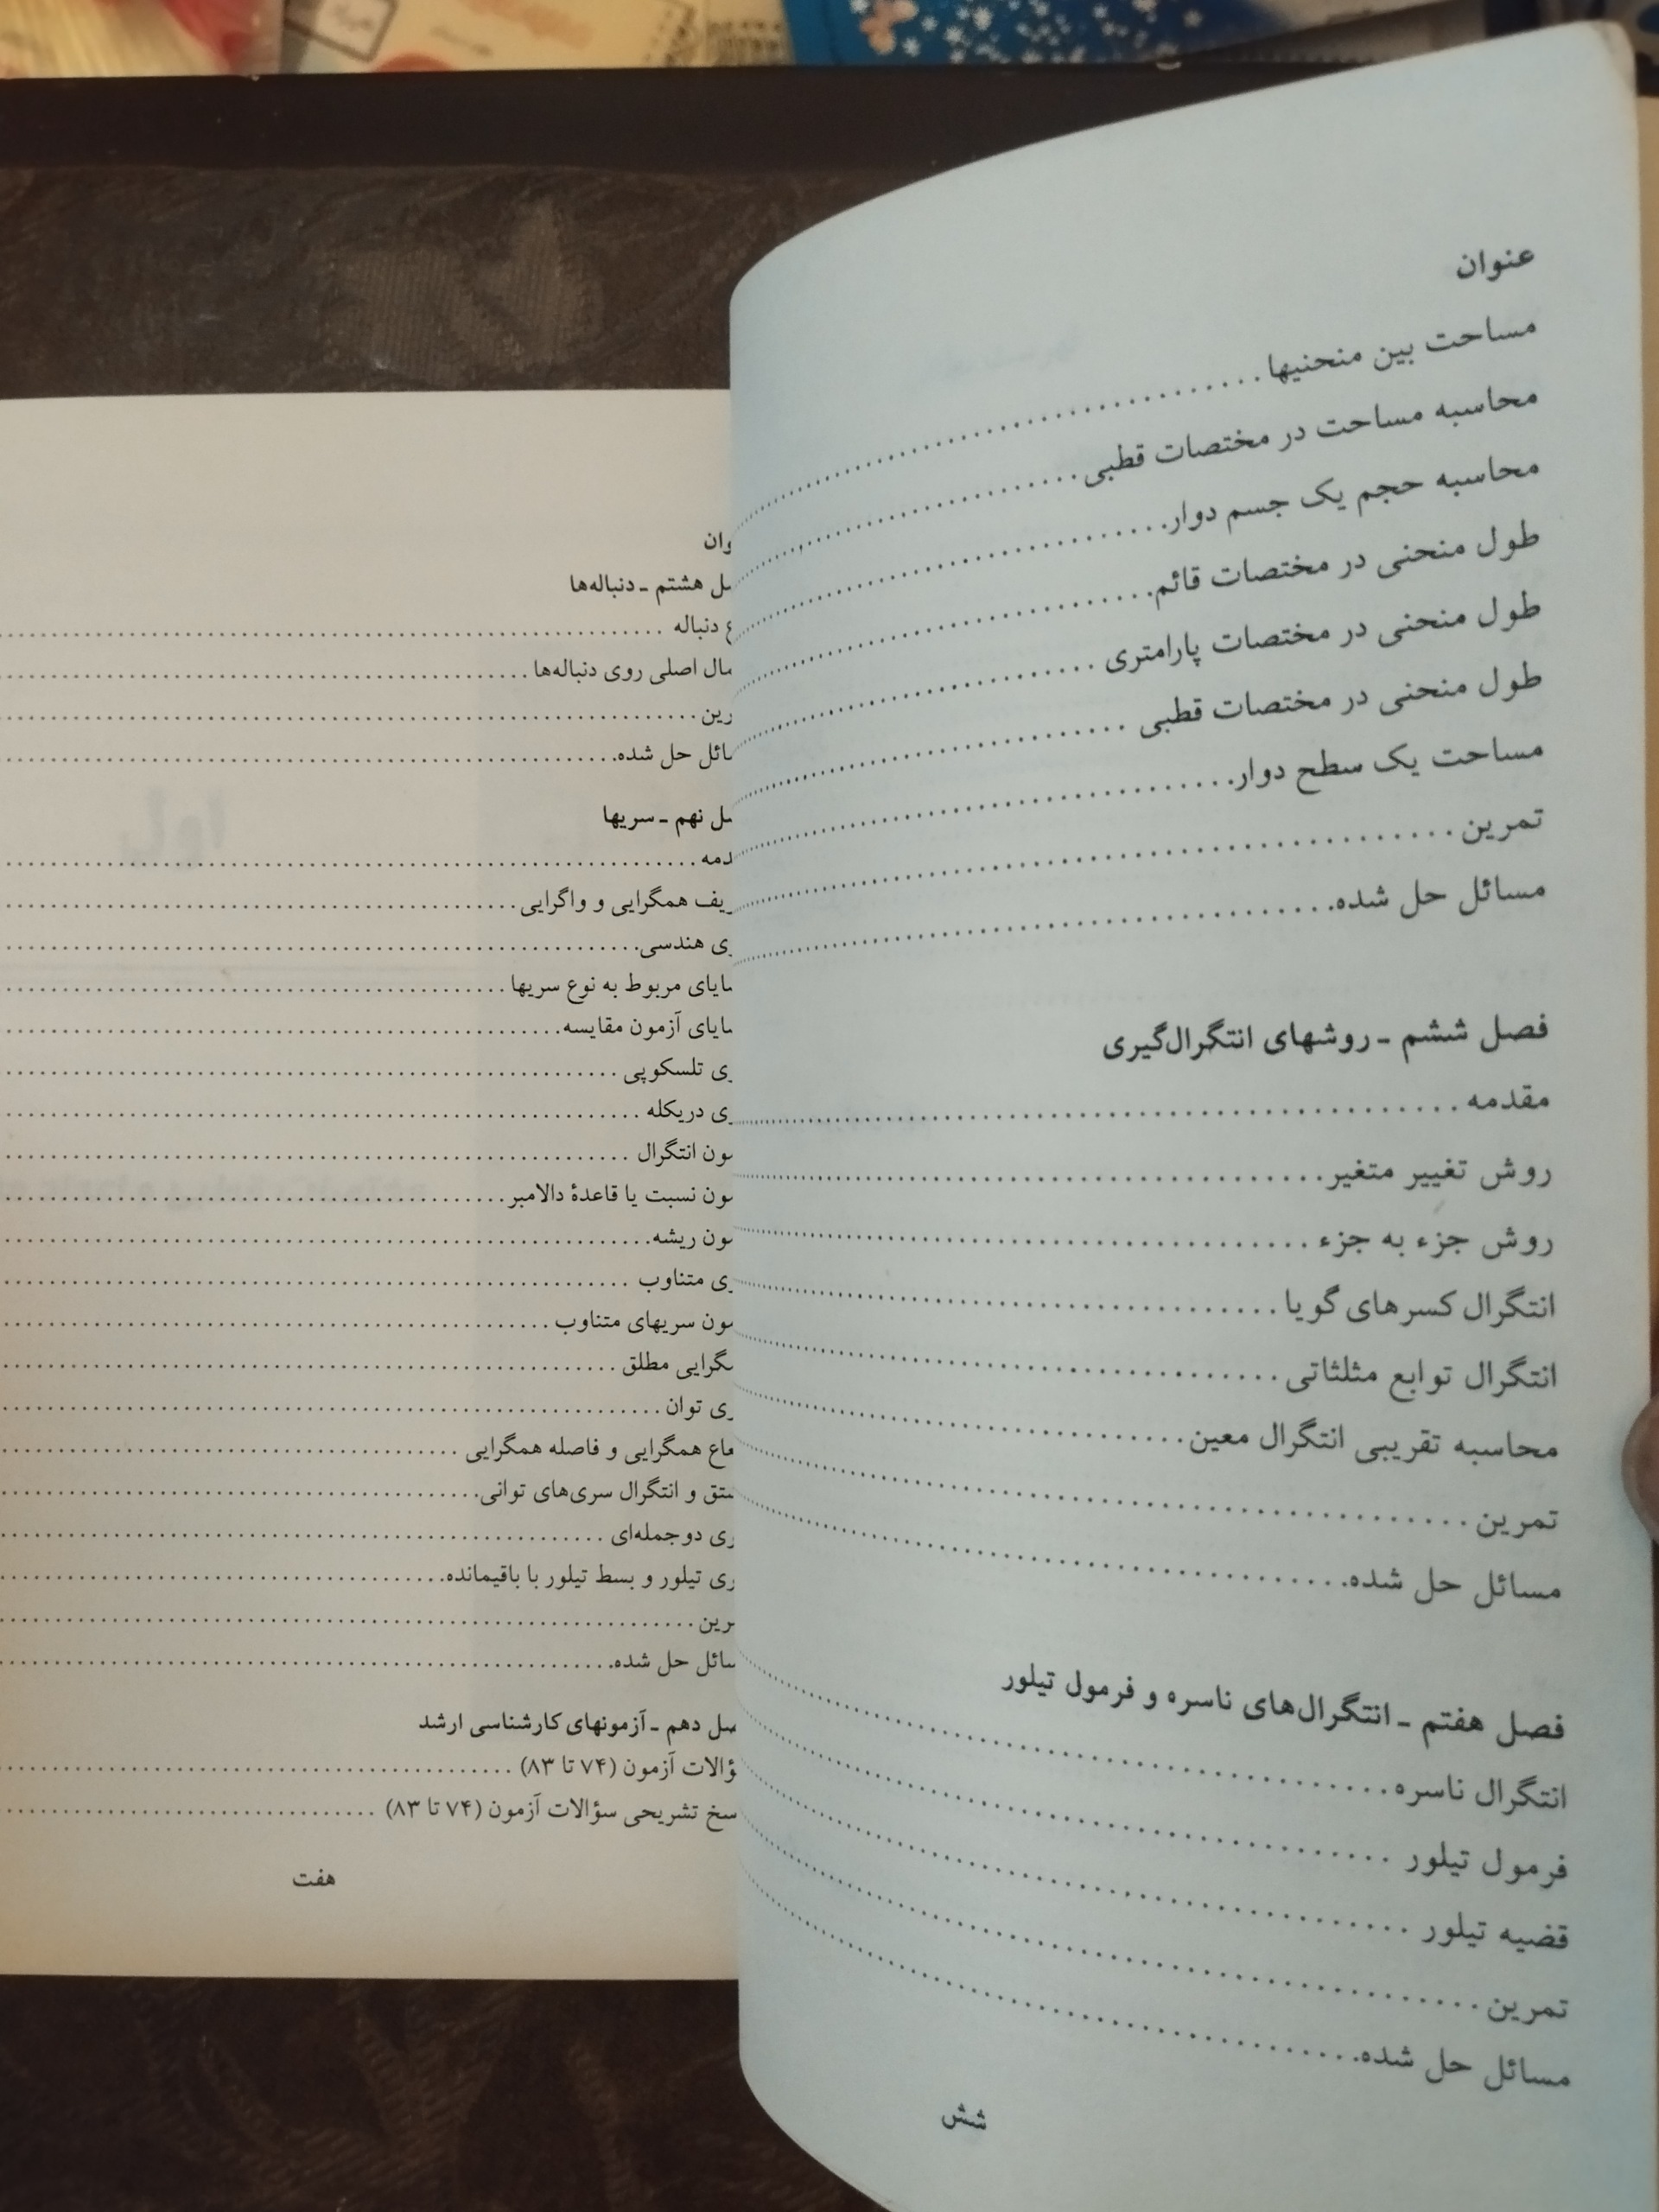 عنوان
مساحت بین منحنیها
محاسبه مساحت در مختصات قطبی
محاسبه حجم یک جسم دوار
طول منحنی در مختصات قائم
طول منحنی در مختصات پارامتری
طول منحنی در مختصات قطبی
مساحت یک سطح دوار
تمرین
مسائل حل شده
فصل ششم ـ روشهای انتگرال‌گیری
مقدمه
روش تغییر متغیر
روش جزء به جزء
انتگرال کسرهای گویا
انتگرال توابع مثلثاتی
محاسبه تقریبی انتگرال معین
تمرین
مسائل حل شده
فصل هفتم ـ انتگرال‌های ناسره و فرمول تیلور
انتگرال ناسره
فرمول تیلور
قضیه تیلور
تمرین
مسائل حل شده
شش
هشتم ـ دنباله‌ها
دنباله
اصلی روی دنباله‌ها
حل شده
نهم ـ سریها
همگرایی و واگرایی
هندسی
مربوط به نوع سریها
آزمون مقایسه
تلسکوپی
دریکله
انتگرال
نسبت یا قاعدهٔ دالامبر
ریشه
متناوب
سریهای متناوب
مطلق
توان
همگرایی و فاصله همگرایی
و انتگرال سری‌های توانی
دوجمله‌ای
تیلور و بسط تیلور با باقیمانده
حل شده
دهم ـ آزمونهای کارشناسی ارشد
آزمون (۷۴ تا ۸۳)
تشریحی سؤالات آزمون (۷۴ تا ۸۳)
هفت